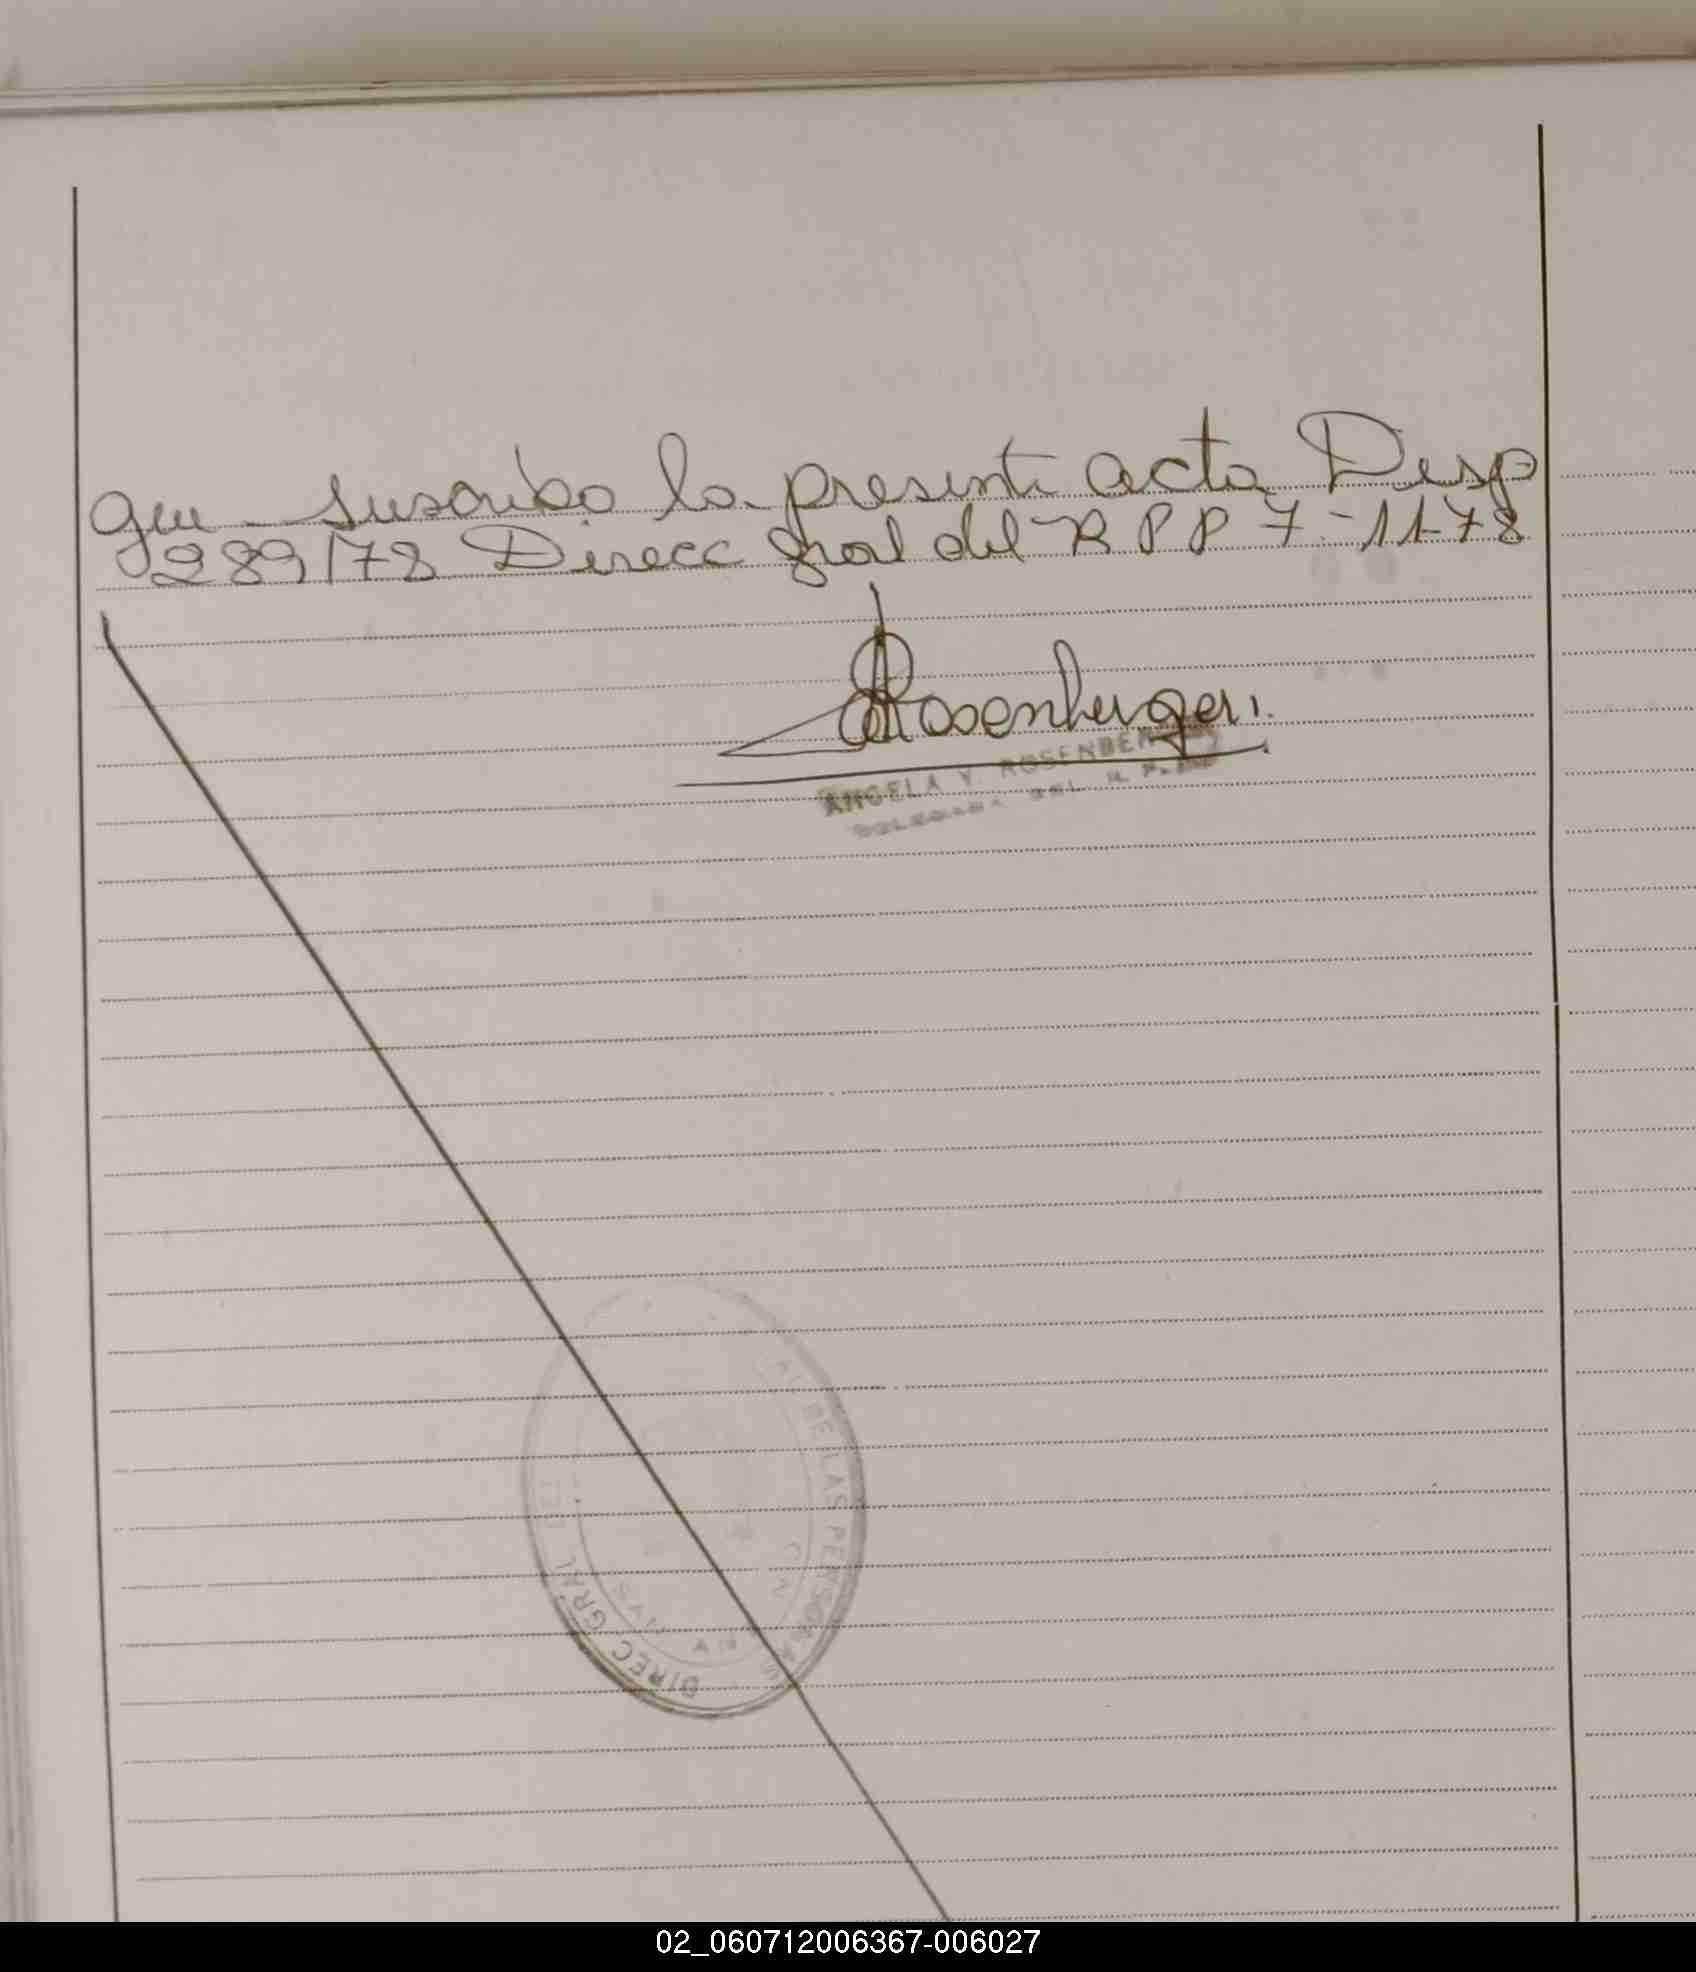 que suscriba la presente acta Desp
289/78 Direcc Gral del R P P 7-11-78
Rosenberger.
ANGELA Y. ROSENBERGER
DIREC GRAL DEL
AL DE LAS PERSONAS
02_060712006367-006027